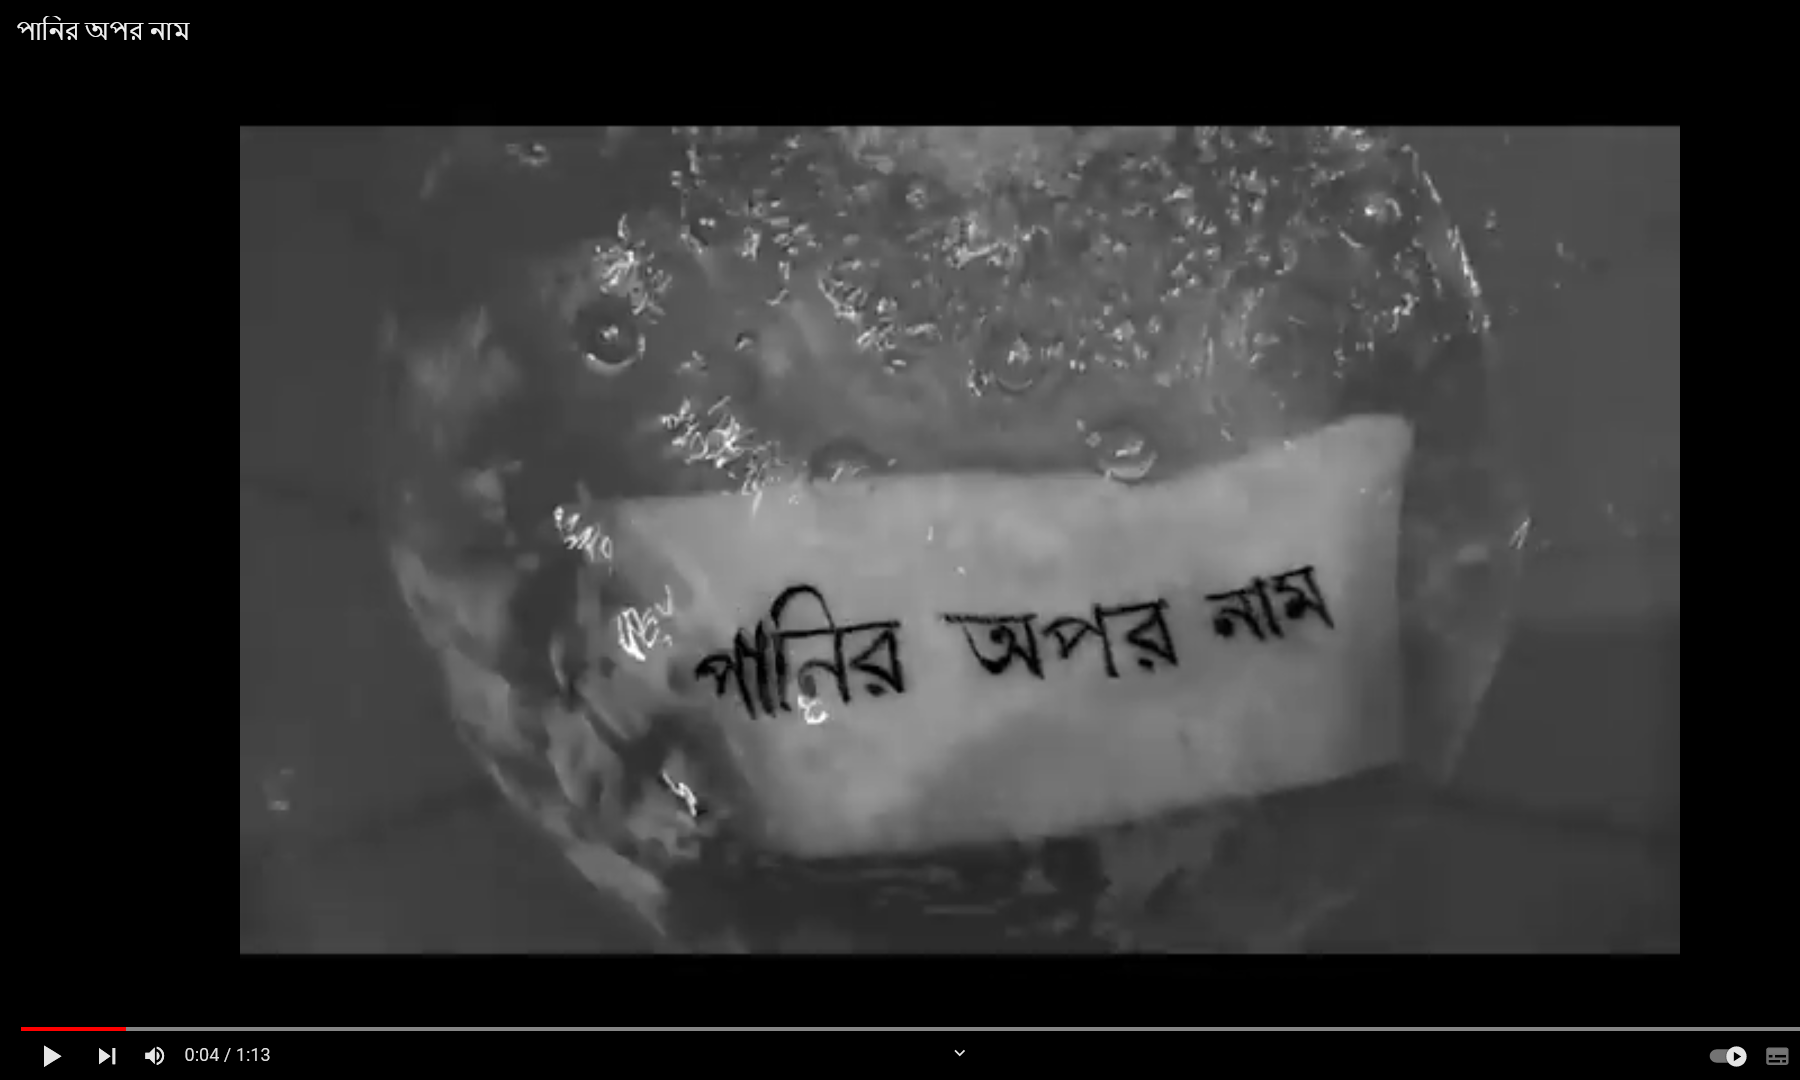 পানির অপর নাম
পানির অপর নাম
0:04 / 1:13